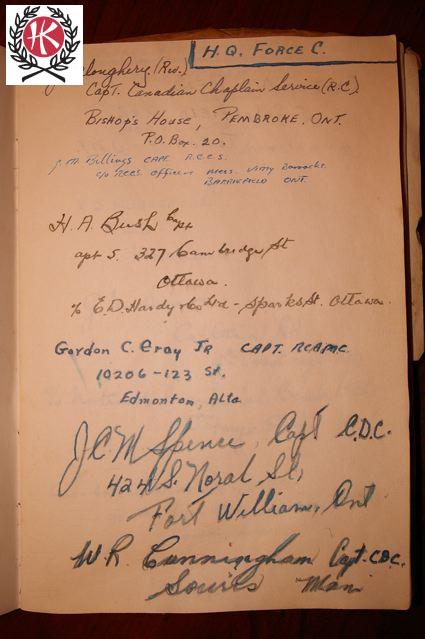 HK
H.Q. FORCE C.
loughery. (Rev.)
Capt. Canadian Chaplain Service (R.C.)
BISHOP'S HOUSE, PEMBROKE, ONT.
P.O. Box. 20.
J.M. Billings CAPT. R.C.C.S.
c/o RCCS. Officers Mess. Vimy Barracks
BARRIEFIELD ONT.
H. A. Bush Capt
apt 5. 327 Cambridge St
Ottawa.
% E.D. Hardy & Co Ltd - Sparks St. Ottawa.
Gordon C. Gray JR CAPT. RCAPMC.
10206-123 St.
Edmonton, Alta
J.C.M Spence, Capt C.D.C.
424 S. Noral St,
Fort William, Ont
W.R. Cunningham Capt. C.D.C.
Souris Man